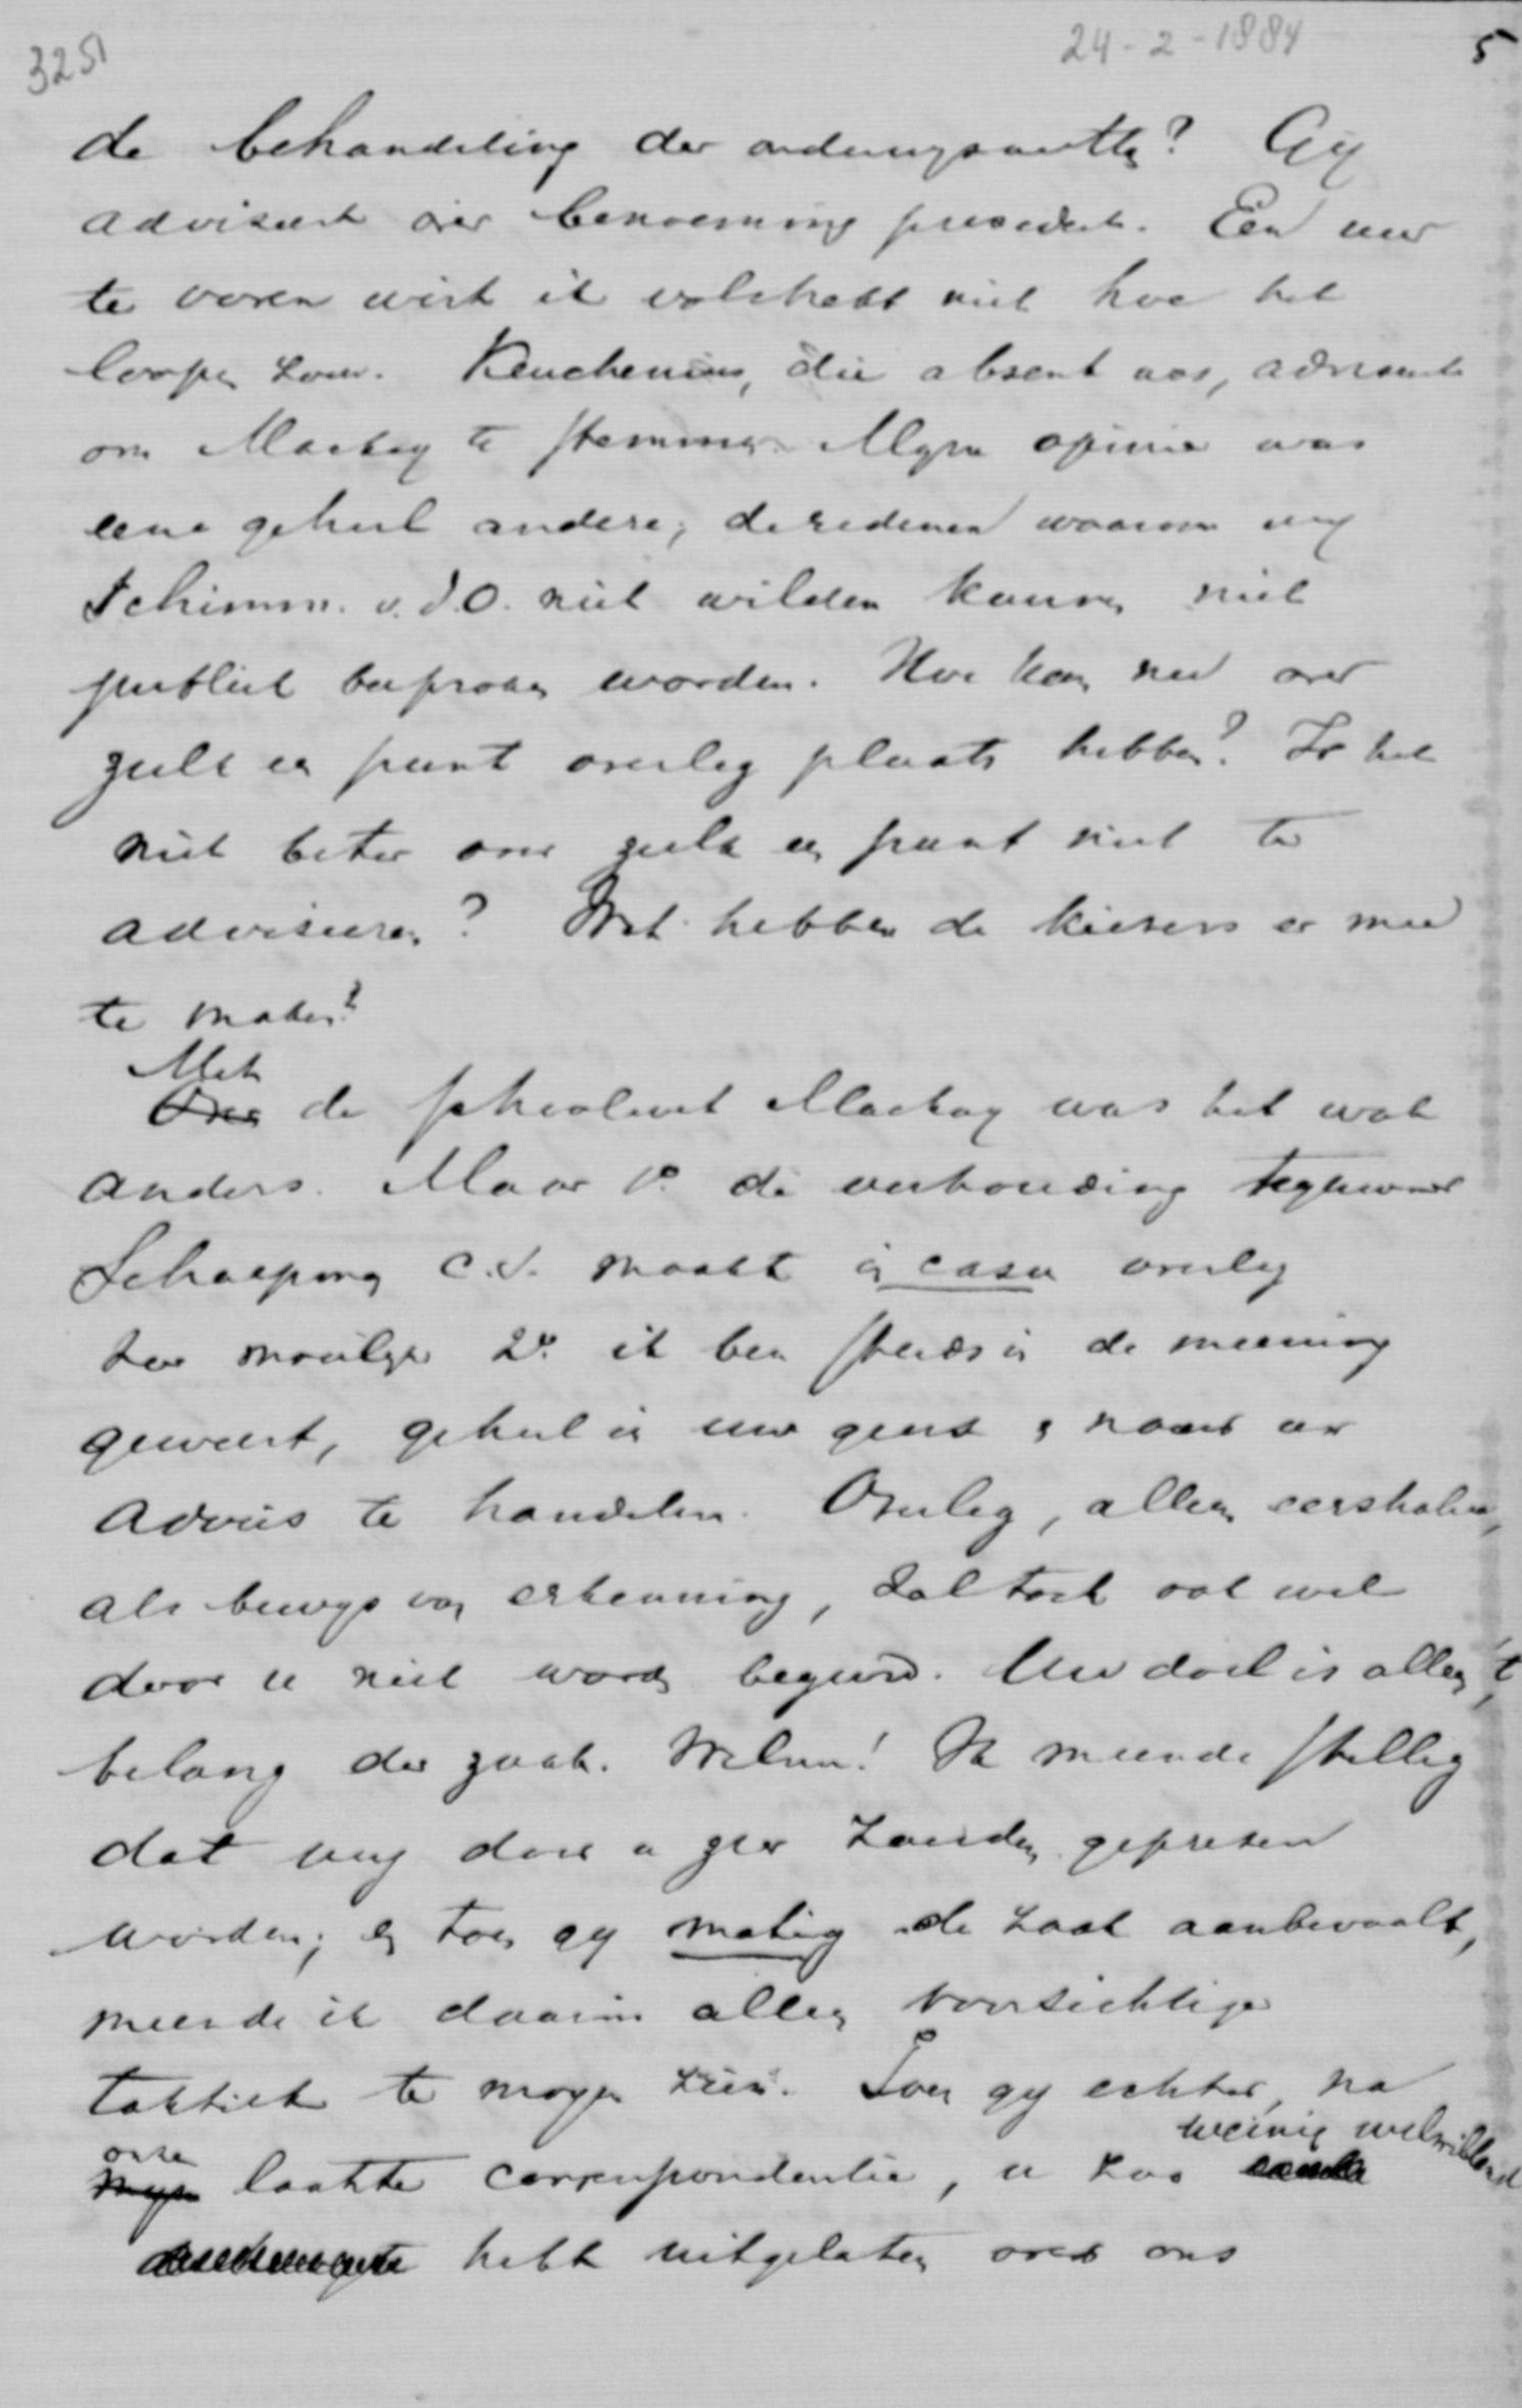 3251
24-2-1884
5
de behandeling der onderwijswetten? Gy
adviseert over benoeming president. Een uur
te voren wist ik volstrekt niet hoe het
loopen zou. Keuchenius, die absent was, adviseerde
om Mackay te stemmen. Myne opinie was
eene geheel andere; de redenen waarom wy
Schimm. v. d. O. niet wilden kunnen niet
publiek besproken worden. Hoe kan nu over
zulk een punt overleg plaats hebben? Is het
niet beter over zulk een punt niet te
adviseeren? Wat hebben de kiezers er mee
te maken?
Met
Over de schoolwet Mackay was het wat
anders. Maar 1o. de verhouding tegenover
Schaepman c.s. maakt in casu overleg
zeer moeilyk 2o. ik ben steeds in de meening
geweest, geheel in uw geest & naar uw
advies te handelen. Overleg, alleen eershalve,
als bewys van erkenning, zal toch ook wel
door u niet worden begeerd. Uw doel is alleen 't
belang der zaak. Welnu! Ik meende stellig
dat wy door u zeer zouden geprezen
worden; en toen gy matig de zaak aanbevaalt,
meende ik daarin alleen voorzichtige
taktiek te mogen zien. Toen gy echter, na
onze weinig welwillend
myne laatste correspondentie, u zoo
hebt uitgelaten over ons